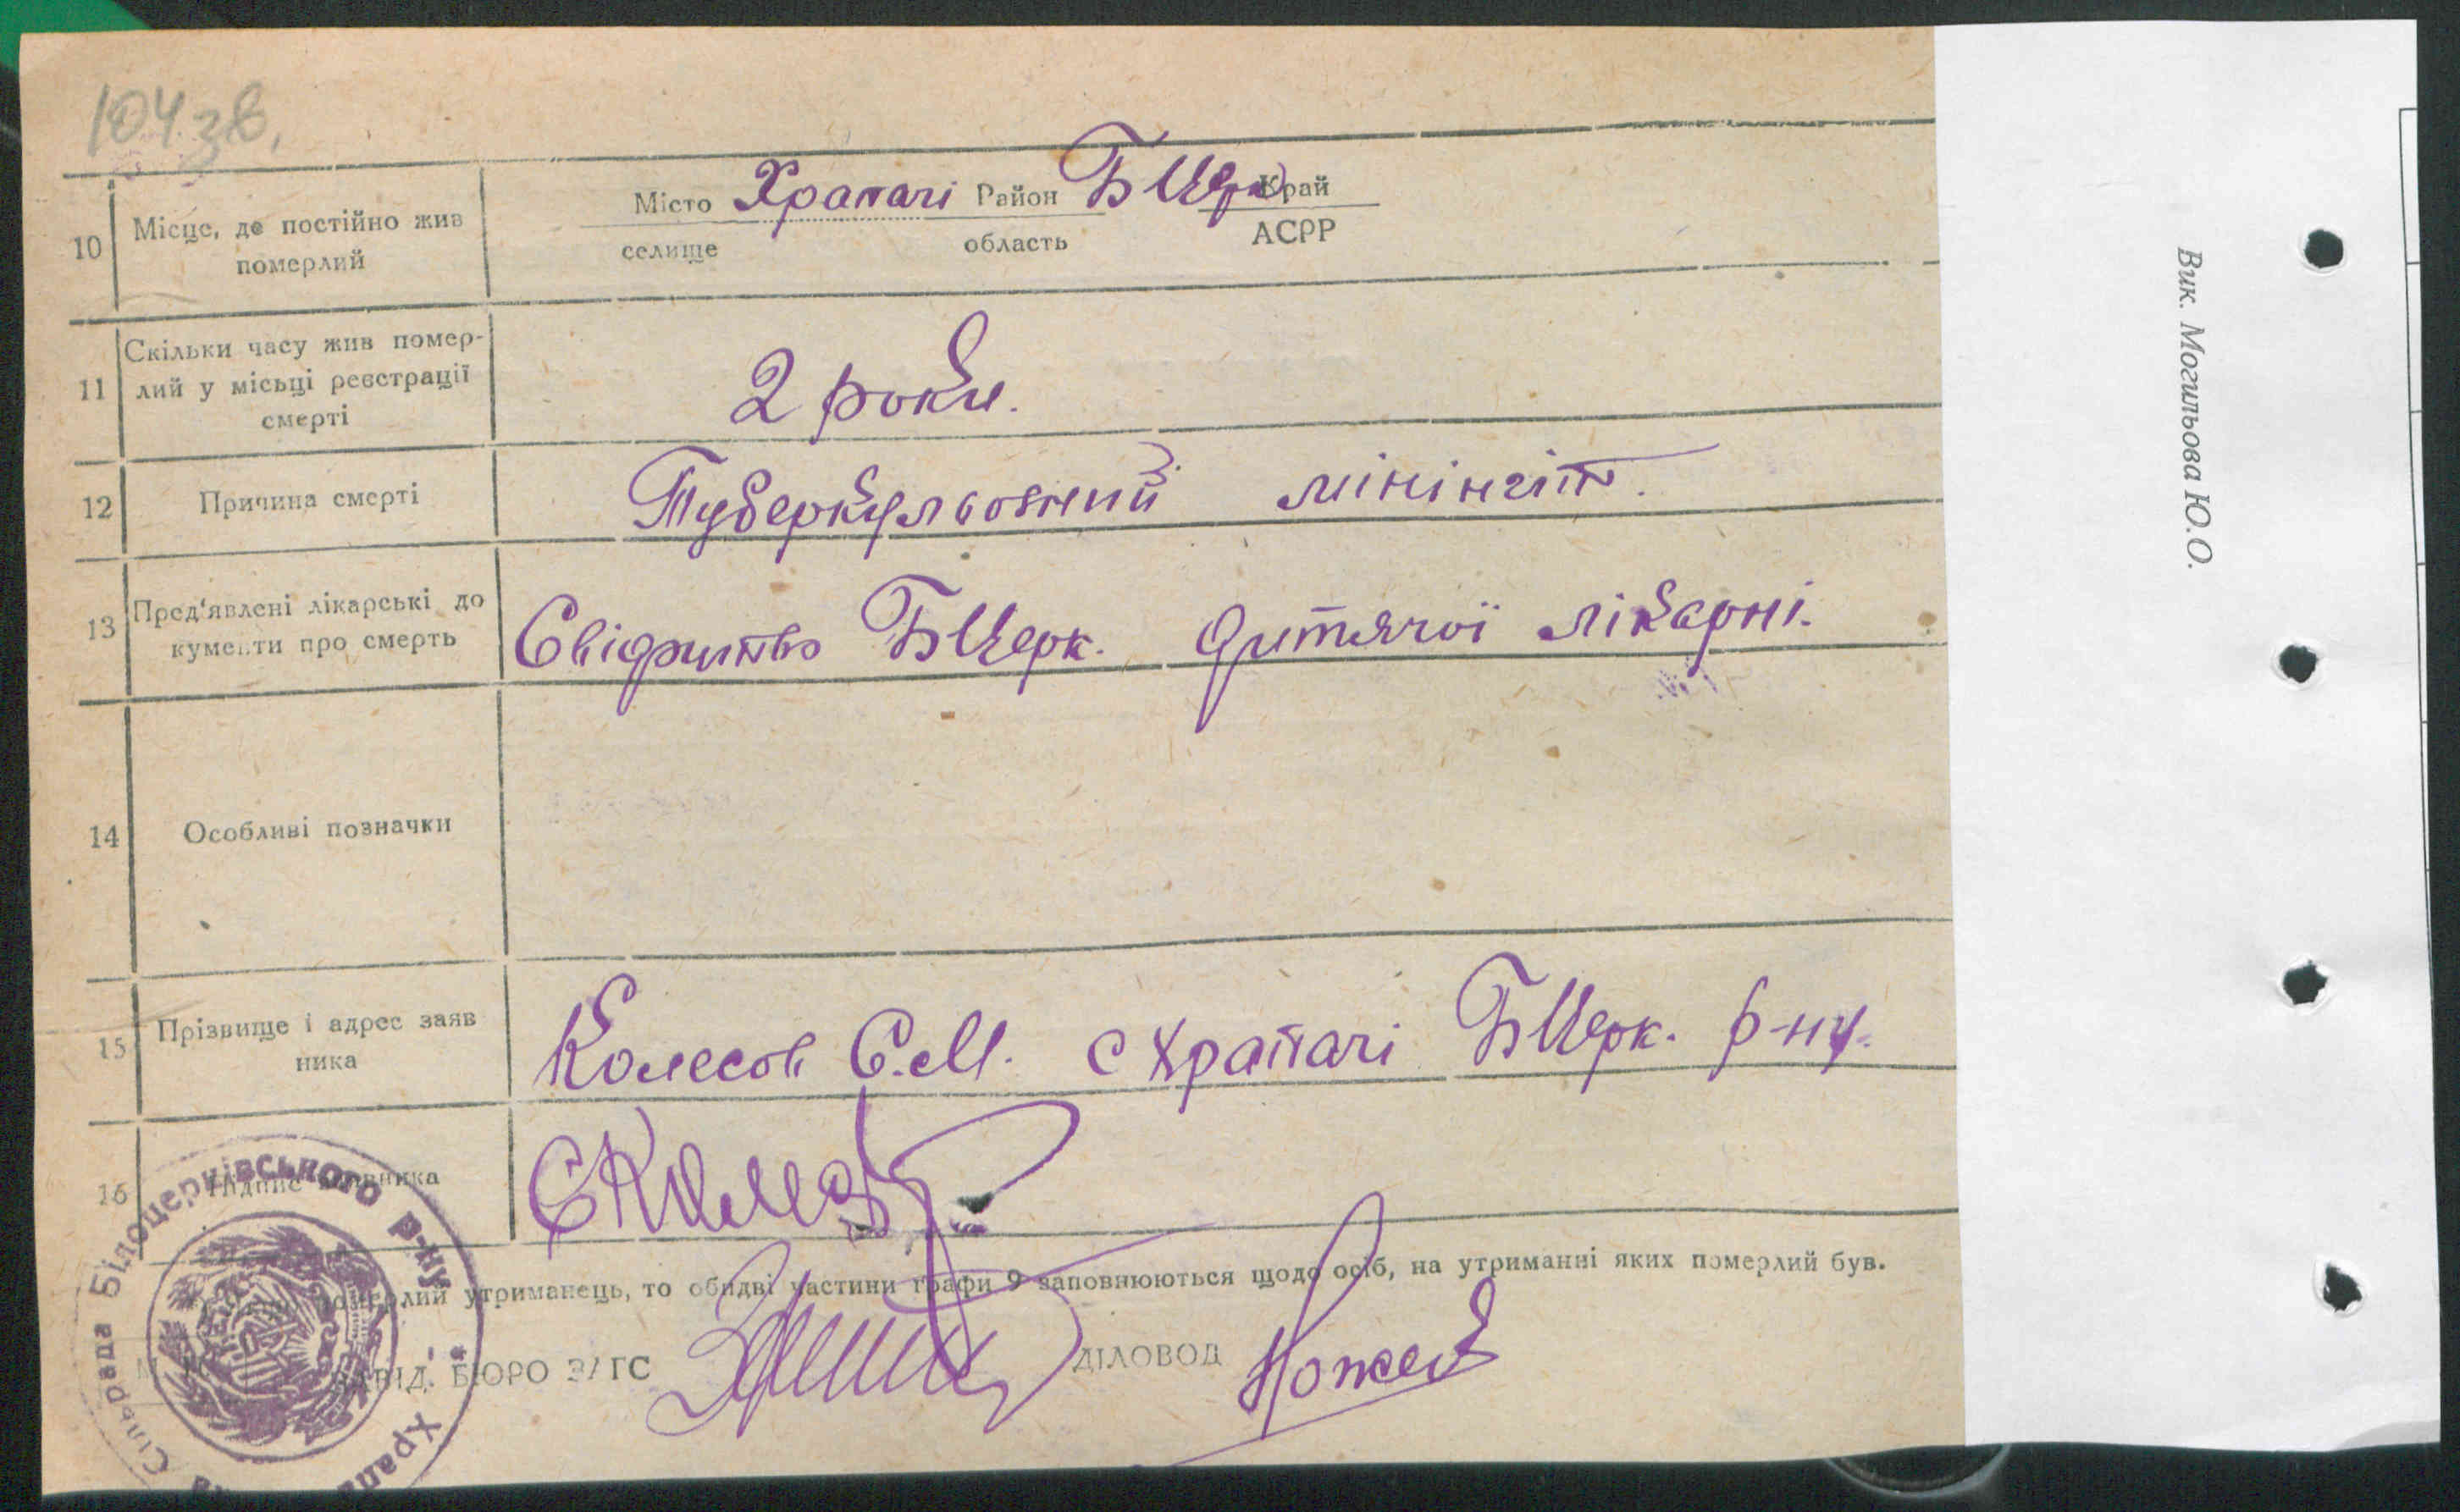 104зв.
10 Місце, де постійно жив померлий
Місто Храпачі Район БЦерк Край
селище область АСРР
11 Скільки часу жив помер-
лий у місьці реєстрації
смерті
2 роки.
12 Причина смерті
Туберкульозний мінінгіт.
13 Пред'явлені лікарські до
кументи про смерть
Свідоцтво БЦерк. дитячої лікарні.
14 Особливі позначки
15 Прізвище і адрес заяв
ника
Колесов С.М. с Храпачі БЦерк. р-ну.
16 Підпис заявника
померлий утриманець, то обидві частини графи 9 заповнюються щодо осіб, на утриманні яких померлий був.
ЗАВІД. БЮРО ЗАГС
ДІЛОВОД
Сільрада Білоцерківського р-ну
Вик. Могильова Ю.О.